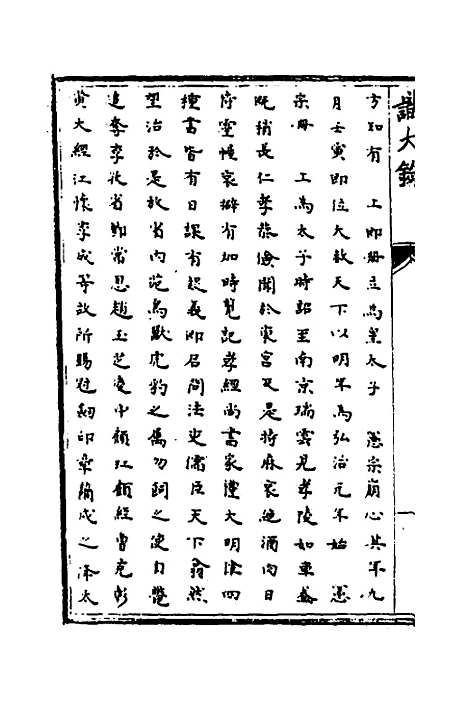 識大錄
方知有　上即冊立為皇太子　憲宗崩心其年九
月壬寅即位大赦天下以明年為弘治元年始　憲
宗冊　上為太子時詔至南京瑞雲見孝陵如車蓋
既稍長仁孝恭儉聞於東宮及是持麻衰絶酒肉日
侍靈幄哀擗有加時覽記孝經尚書家禮大明律四
種書皆有日課有疑義即召問法吏儒臣天下翕然
望治於是放省內苑鳥獸虎豹之屬勿飼之使自斃
追奪李孜省鄧常恩趙玉芝凌中顧玒顧經曾克彰
黃大經江懷李成等故所賜冠劒印章謫戍之澤太